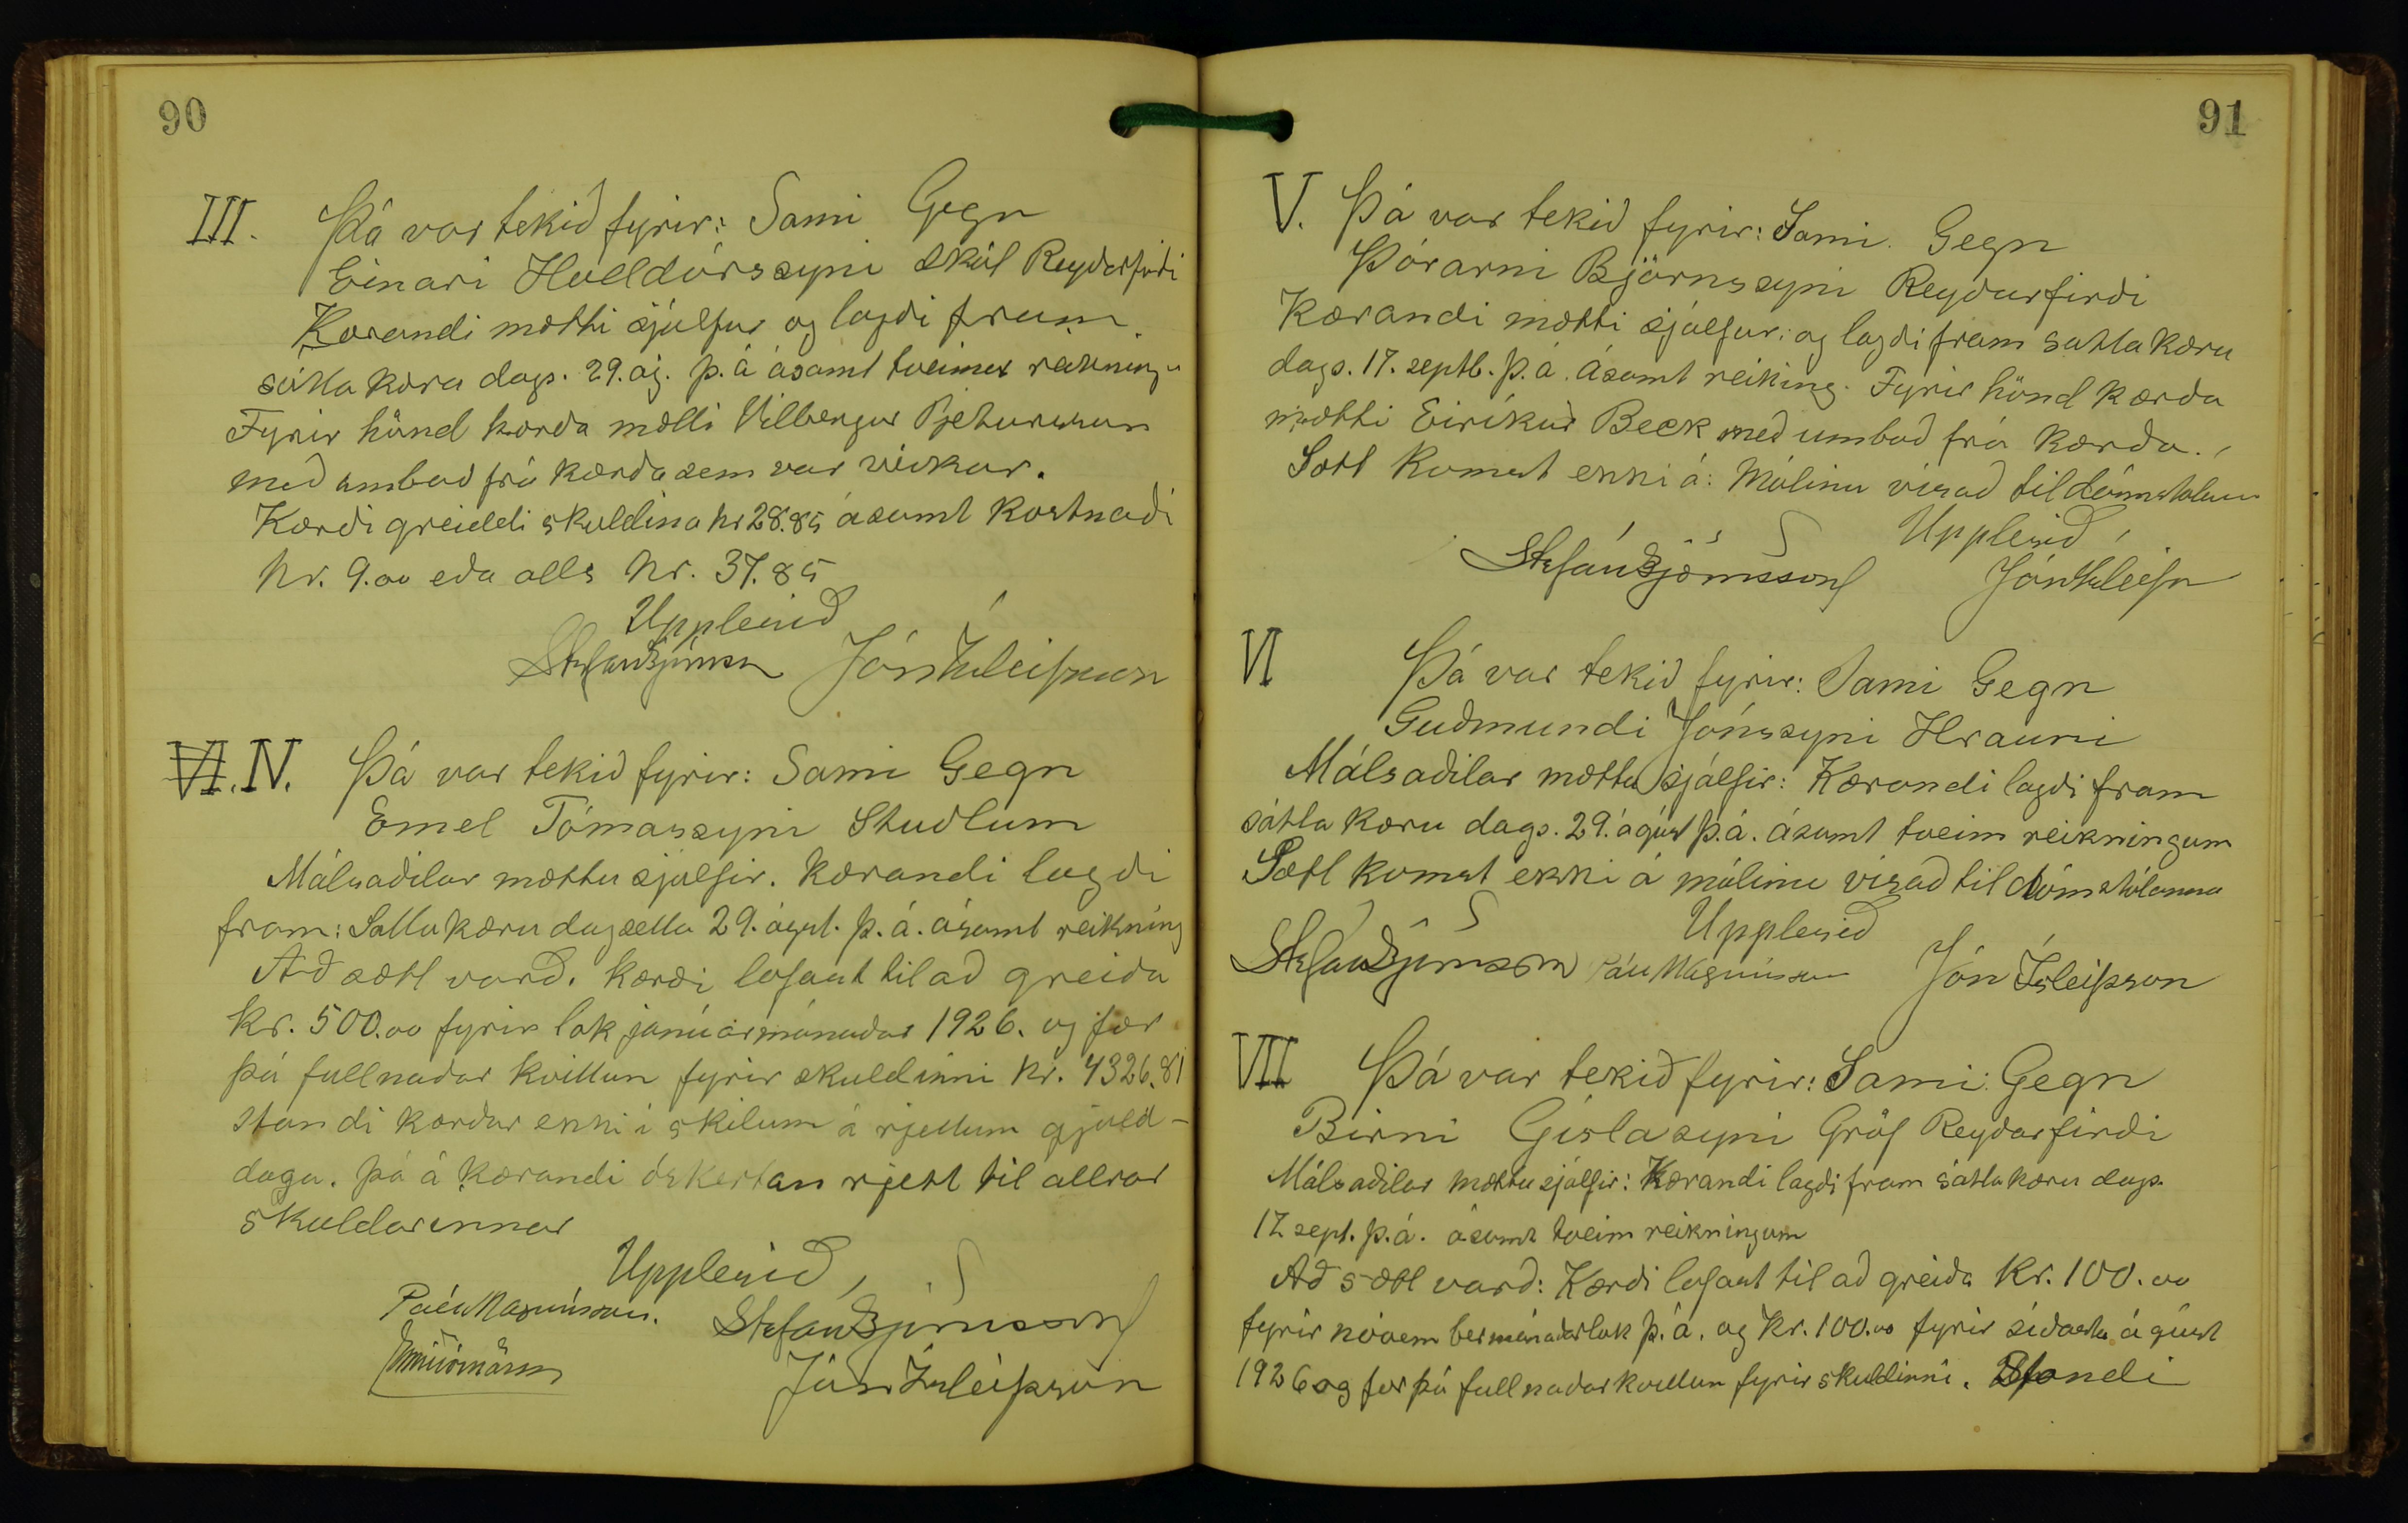 90
III. Þá var tekið fyrir: Sami Gegn
Einari Halldórssyni Skál Reyðarfirði
Kærandi mætti sjálfur og lagði fram
sátta kæru dags. 29. ág. þ. á ásamt tveimur reikningu
Fyrir hönd kærða mætti Vilbergur Pjetursson
með umboð frá kærða sem var veikur.
Kærði greiddi skuldina kr 28.85 ásamt kostnaði
kr. 9.00 eða alls kr. 37.85
Upplesið
Stefán Björnsson Jón Ísleifsson
VI. IV. Þá var tekið fyrir: Sami Gegn
Emel Tómassyni Stuðlum
Málsaðilar mættu sjálfir. Kærandi lagði
fram: Sáttakæru dagsetta 29. ágúst. þ. á. ásamt reikning
Að sætt varð. Kærði lofast til að greiða
kr. 500.00 fyrir lok janúarmánaðar 1926. og fær
þá fullnaðar kvittun fyrir skuldinni kr. 4326.81
standi kærður ekki í skilum á rjettum gjald-
daga. þá á kærandi óskertan rjett til allrar
skuldarinnar
Upplesið,
Páll Magnússon. Stefán Björnsson
Jón Ísleifsson
91
V. Þá var tekið fyrir: Sami. Gegn
Þórarni Björnssyni Reyðarfirði
Kærandi mætti sjálfur: og lagði fram satta kæru
dags. 17. septb. þ. á. ásamt reiking. Fyrir hönd kærða
mætti Eiríkur Beck með umboð frá kærða.
Sætt komst ekki á: Málinu vísað til dómstolana
Upplesið,
Stefán Björnsson Jón Ísleifsn
VI Þá var tekið fyrir: Sami Gegn
Guðmundi Jónssyni Hrauni
Málsaðilar mættu sjálfir: Kærandi lagði fram
sátta kæru dags. 29. ágúst þ. á. ásamt tveim reikningum
Sætt komst ekki á málinu vísað til dómstólanna
Upplesið
Stefán Björnsson Páll Magnússon Jón Ísleifsson
VII Þá var tekið fyrir: Sami: Gegn
Birni Gíslasyni Gröf Reyðarfirði
Málsaðilar mættu sjálfir: Kærandi lagði fram sáttakæru dags.
17 sept. þ. á. ásamt tveim reikningum
Að sætt varð: Kærði lofast til að greiða kr. 100.00
fyrir nóvembermánaðarlok þ. á. og kr. 100.00 fyrir síðasta ágúst
1926 og fær þá fullnaðarkvittun fyrir skuldinni. Standi